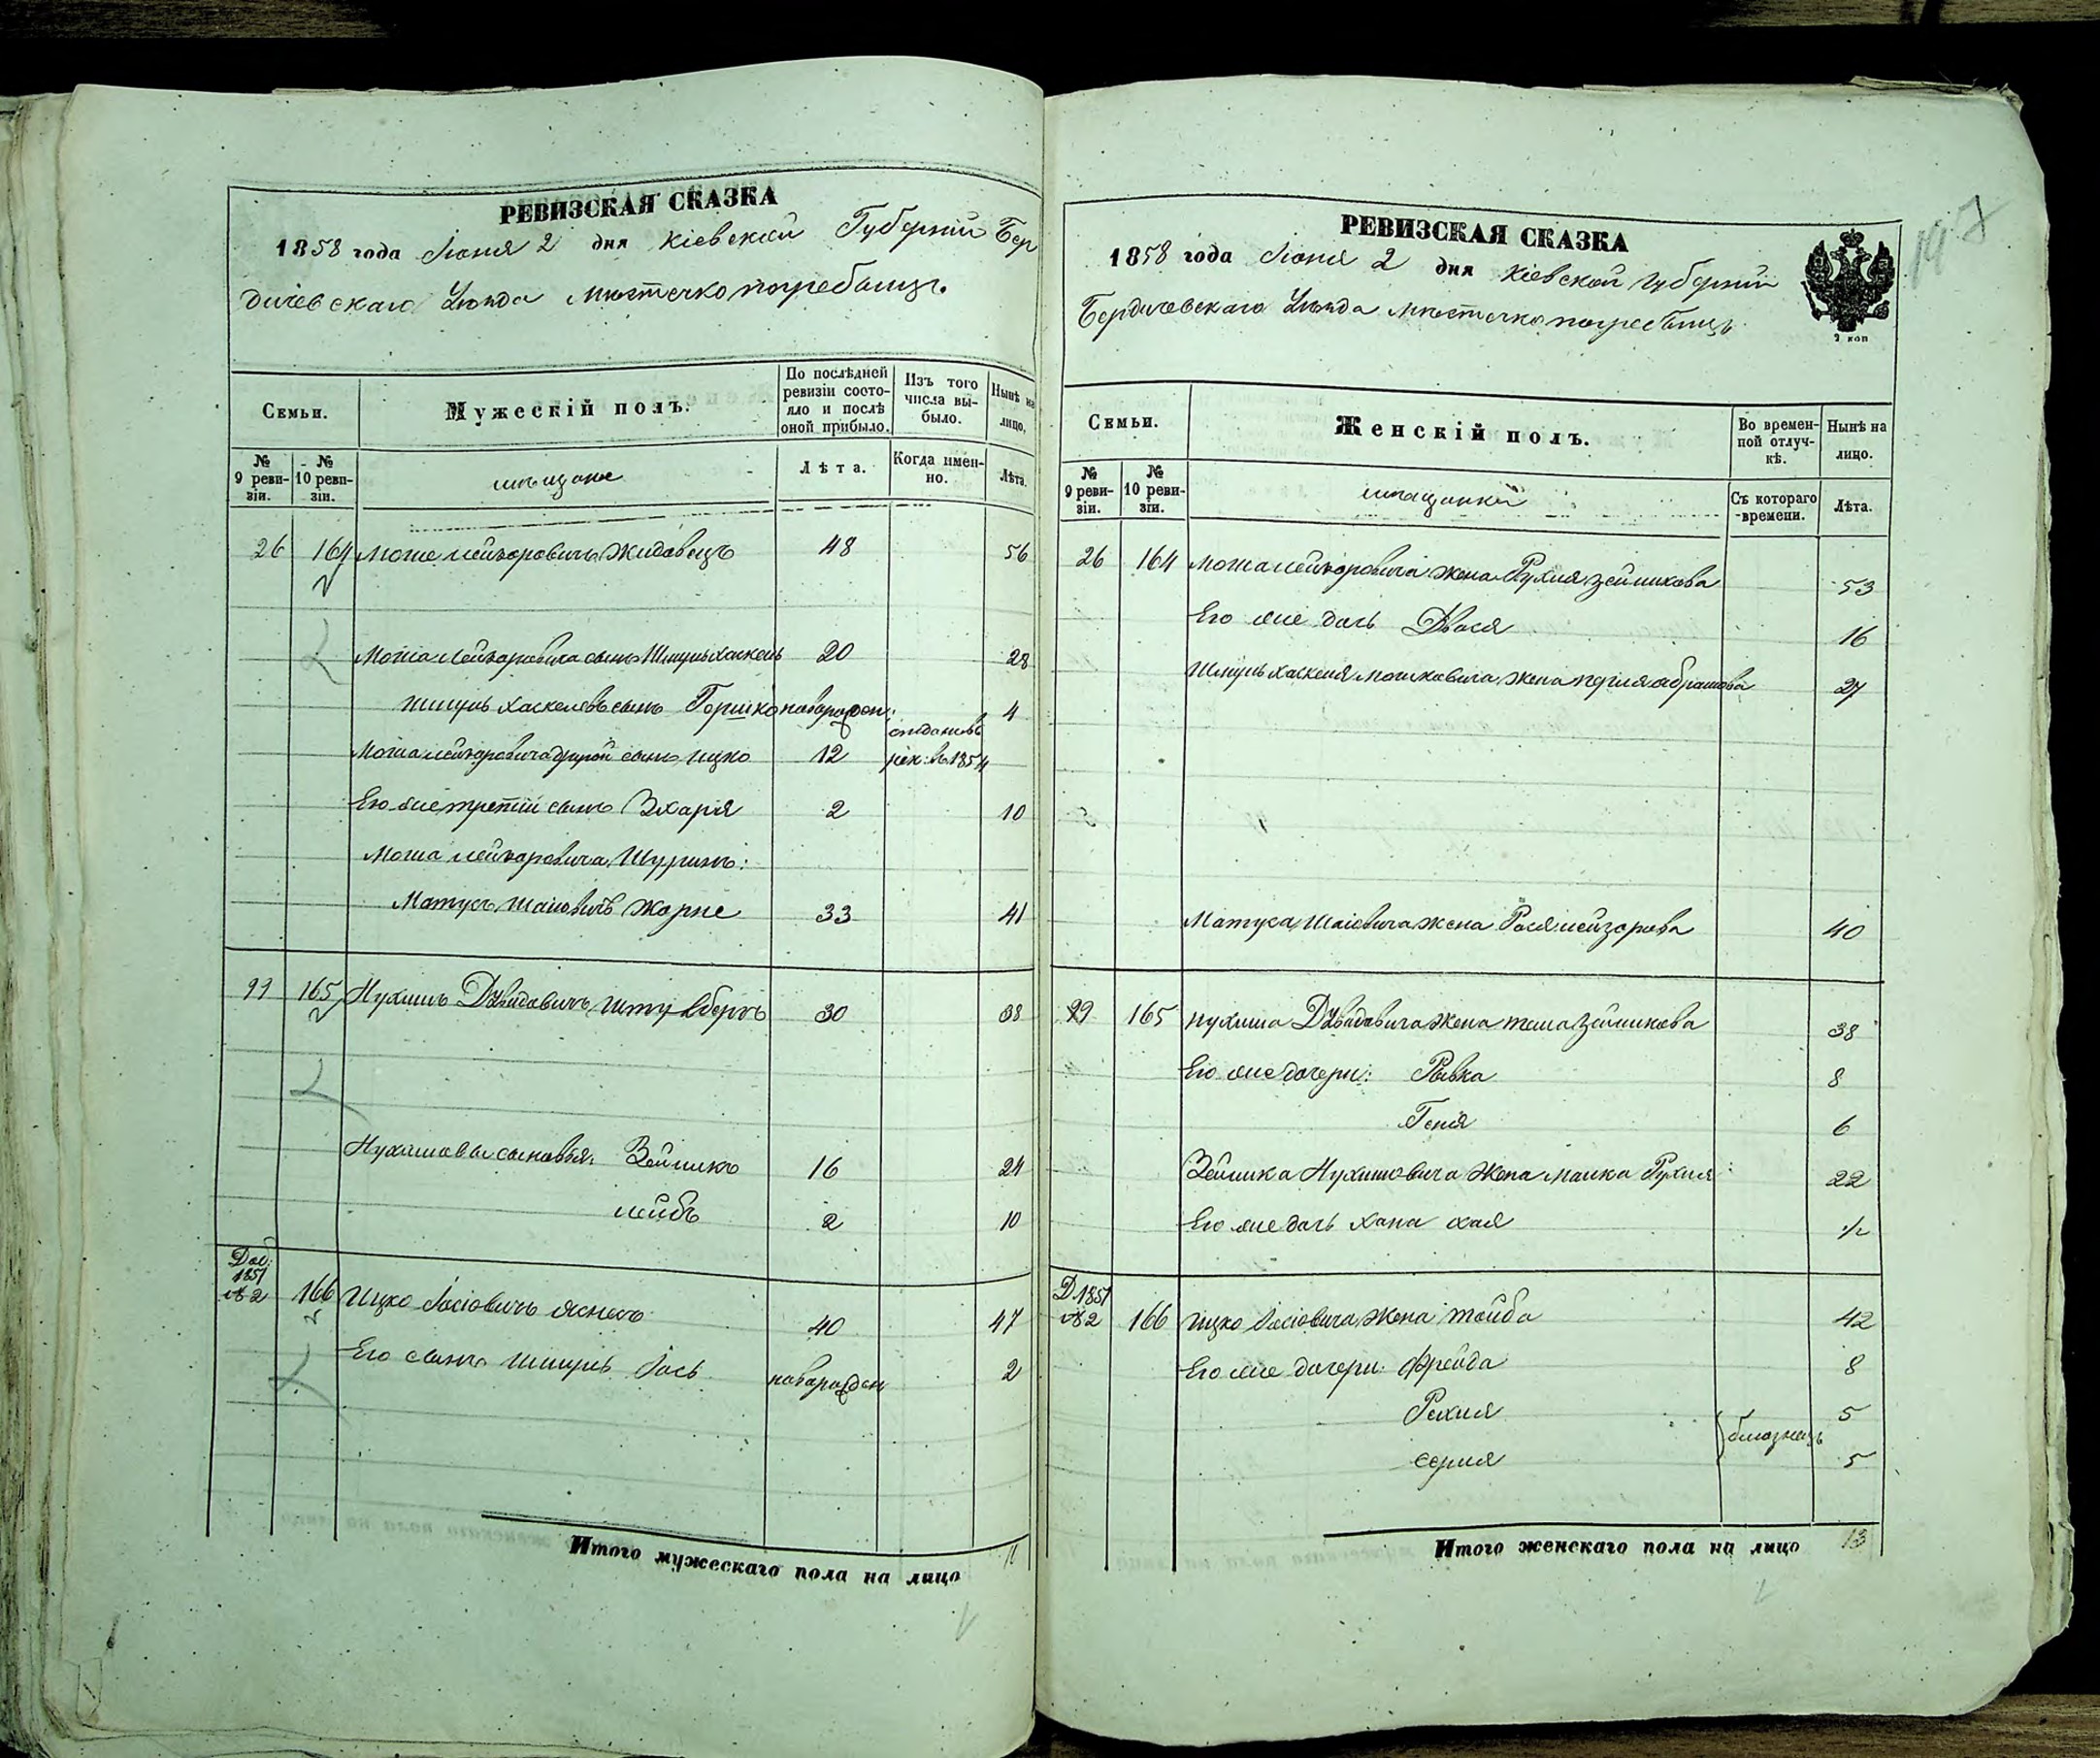 РЕВИЗСКАЯ СКАЗКА
1858 года Іюня 2 дня Кіевской Губерніи Бер
дичевскаго Уѣзда Мѣстечко Погребищъ.
Семьи.
Мужескій полъ.
По послѣдней ревизіи состояло и послѣ оной прибыло.
Изъ того числа выбыло.
Нынѣ на лицо.
№ 9 ревизіи.
№ 10 ревизіи.
мѣщане
Лѣта.
Когда именно.
Лѣта.
26 164 Моше Лейзоровичъ Жидовецъ 48 56
Моша Лейзоровича сынъ Шмуль Хаскель 20 28
Шмуль Хаскелевъ сынъ Гершко новорожден: 4
Моша Лейзоровича другой сынъ Ицко 12 отданъ въ рек: въ 1854
Его же третій сынъ Зхарія 2 10
Моша Лейзоровича Шуринъ:
Матусъ Шаіовичъ Жорне 33 41
99 165 Нухимъ Дувидовичъ 30 38
Нухимовы сыновья: Зейликъ 16 24
Лейбъ 2 10
Доб: 1851 № 2 166 Ицко Іосіовичъ 40 47
Его сынъ Шмуль Іось новорожден 2
Итого мужескаго пола на лицо 11
РЕВИЗСКАЯ СКАЗКА
1858 года Іюня 2 дня Кіевской Губерніи
Бердичевскаго Уѣзда Мѣстечко Погребищъ
2 коп
Семьи.
Женскій полъ.
Во временной отлучкѣ.
Нынѣ на лицо.
№ 9 ревизіи.
№ 10 ревизіи.
мѣщанки
Съ котораго времени.
Лѣта.
26 164 Моша Лейзоровича жена Рухля Зейликова 53
Его же дочь Двося 16
Шмуль Хаскеля Мошковича жена Перля Абрамова 27
Матуса Шаіовича жена Рося Лейзорова 40
99 165 Нухима Дувидовича жена Зейликова 38
Его же дочери: Рывка 8
Геня 6
Зейлика Нухимовича жена Малка Рухля 22
Его же дочь Хана Хая 1/2
Д 1851 № 2 166 Ицко Іосіовича жена Тойба 42
Его же дочери: Фрейда 8
Рахля 5
близнецъ
Серля 5
Итого женскаго пола на лицо 13